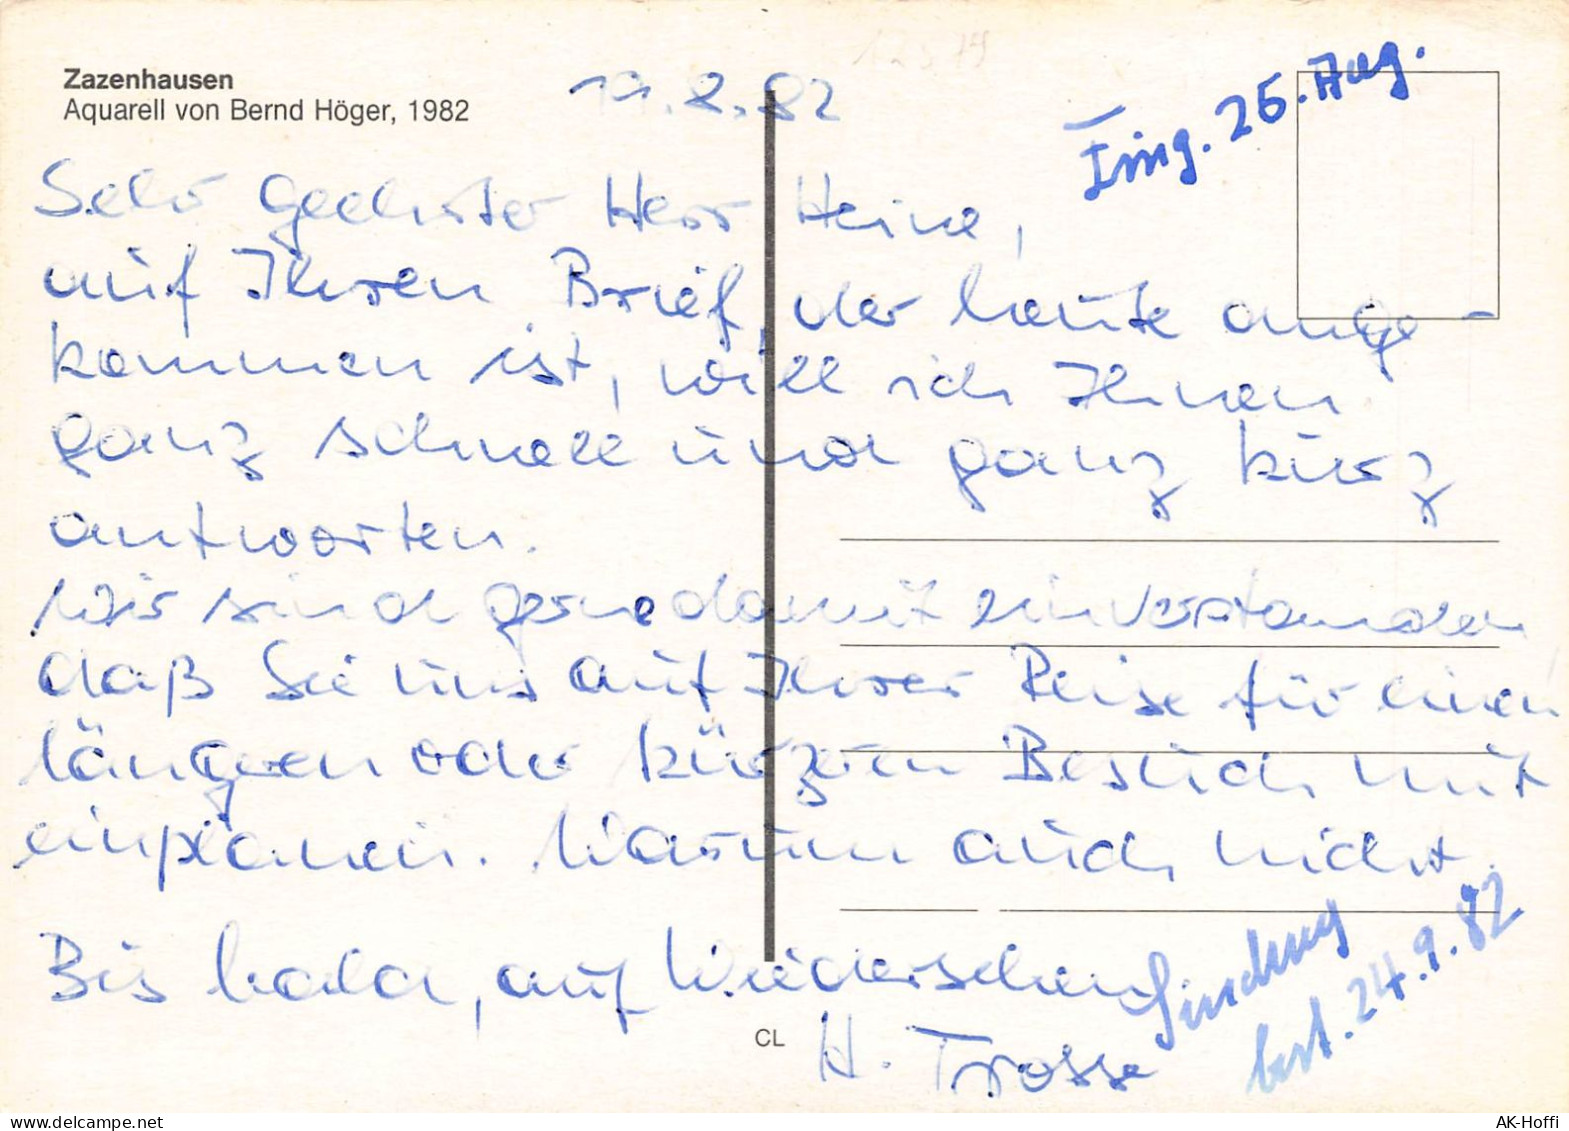 Zazenhausen
Aquarell von Bernd Höger, 1982
19.8.82
Eing. 26. Aug.
Sehr geehrter Herr Heine,
auf Ihren Brief, der heute ange-
kommen ist, will ich Ihnen
ganz schnell und ganz kurz
antworten.
Wir sind gerne damit einverstanden
daß Sie uns auf Ihrer Reise für einen
längeren oder kürzeren Besuch mit
einplanen. Warum auch nicht.
Bis bald, auf Wiedersehen
H. Trosse
Sendung
best. 24.9.82
CL
AK-Hoffi
www.delcampe.net